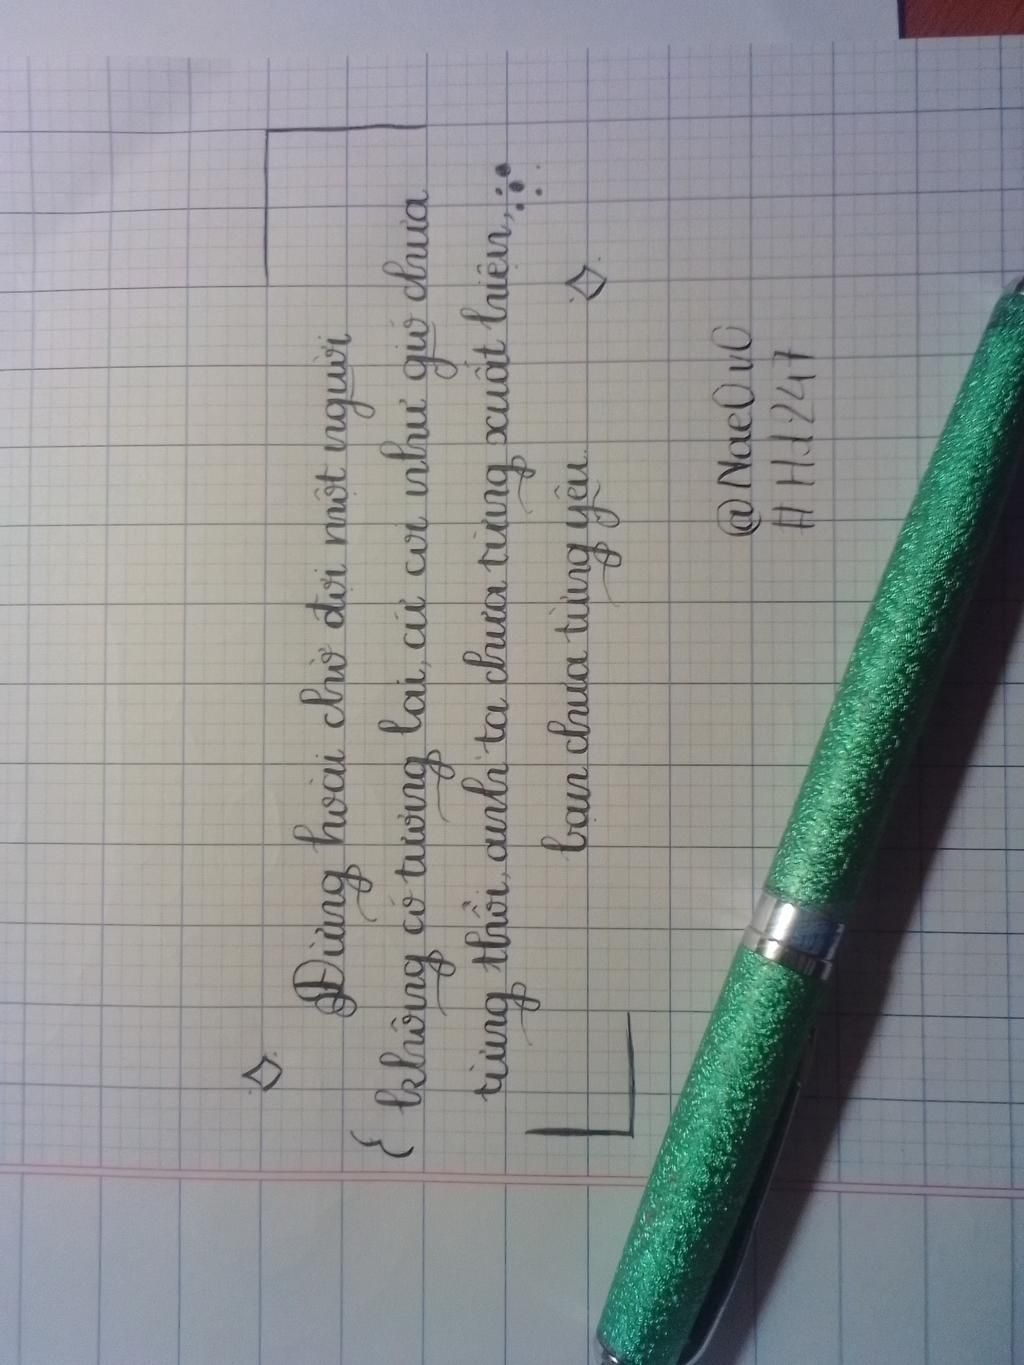 Đừng hoài chờ đợi một người
không có tương lai, cứ coi như giờ chưa
từng thôi, anh ta chưa từng xuất hiện,
bạn chưa từng yêu.
@NaeOvO
#HJ247